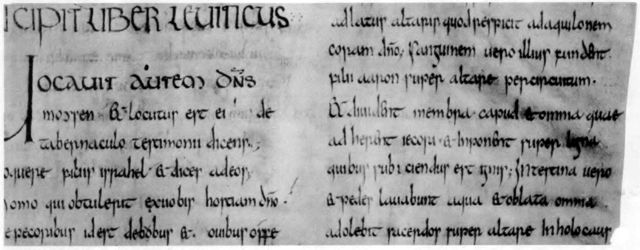 CIPIT LIBER LEVITICUS
Uocauit autem dns̄
moysen & locutus est ei de
tabernaculo testimonii dicens;
oquere filiis israhel & dices ad eos,
omo qui obtulerit ex uobis hostiam dn̄o.
e pecoribus id est de bobus &. ouibus offe
ad latus altaris quod respicit ad aquilonem
coram dn̄o; sanguinem uero illius fundent
filii aaron super altare per circuitum.
& diuident membra capud & omnia quae
ad herent iecori & inponent super ligna
quibus subiciendus est ignis; Intestina uero
& pedes lauabunt aqua & oblata omnia
adolebit sacerdos super altare In holocaus